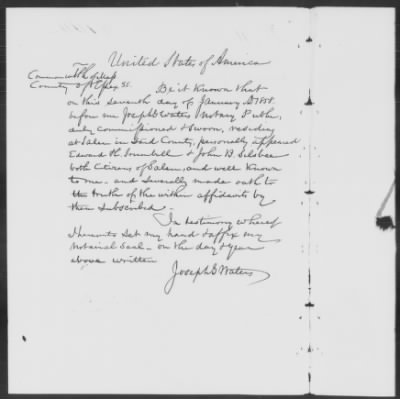 United States of America
The
Commonwealth of Mass
County of Essex SS. Be it Known that
on this seventh day of January A 1858.
before me Joseph G Waters Notary Public,
duly commissioned & sworn, residing
at Salem in said County, personally appeared
Edward H. Trumbull & John B. Silsbee
both Citizens of Salem, and well known
to me - and severally made oath to
the truth of the within affidavits by
them subscribed.
In testimony whereof
I hereunto set my hand & affix my
Notarial Seal - on the day & year
above written
Joseph G Waters